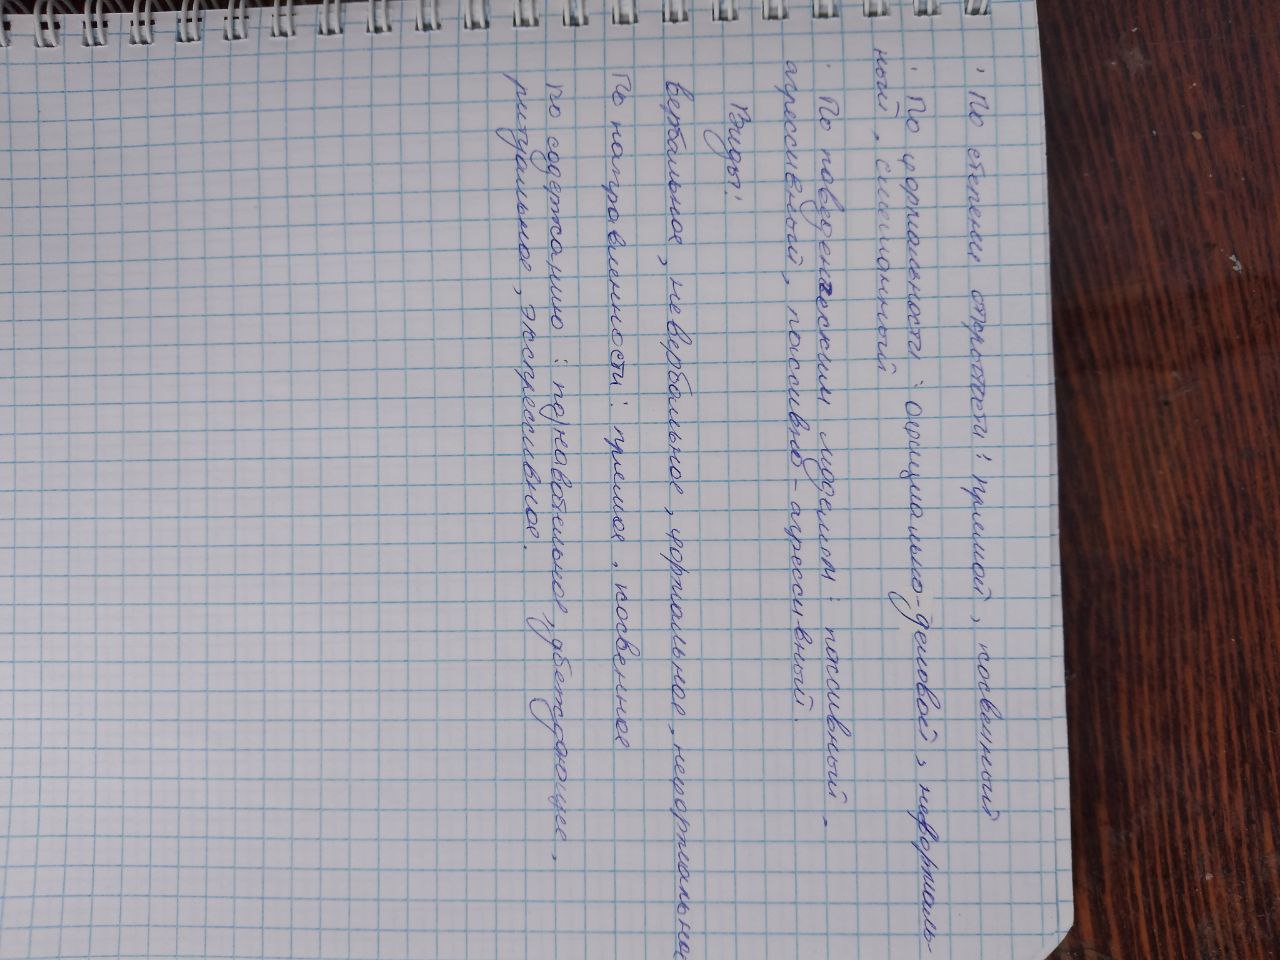 · По степени открытости: прямой, косвенный
· По формальности: официально-деловой, неформаль-
ный, смешанный
· По поведенческим моделям: пассивный,
агрессивный, пассивно-агрессивный.
Виды:
вербальное, невербальное, формальное, неформальное
По направленности: прямое, косвенное
по содержанию: познавательное, убеждающее,
ритуальное, экспрессивное.